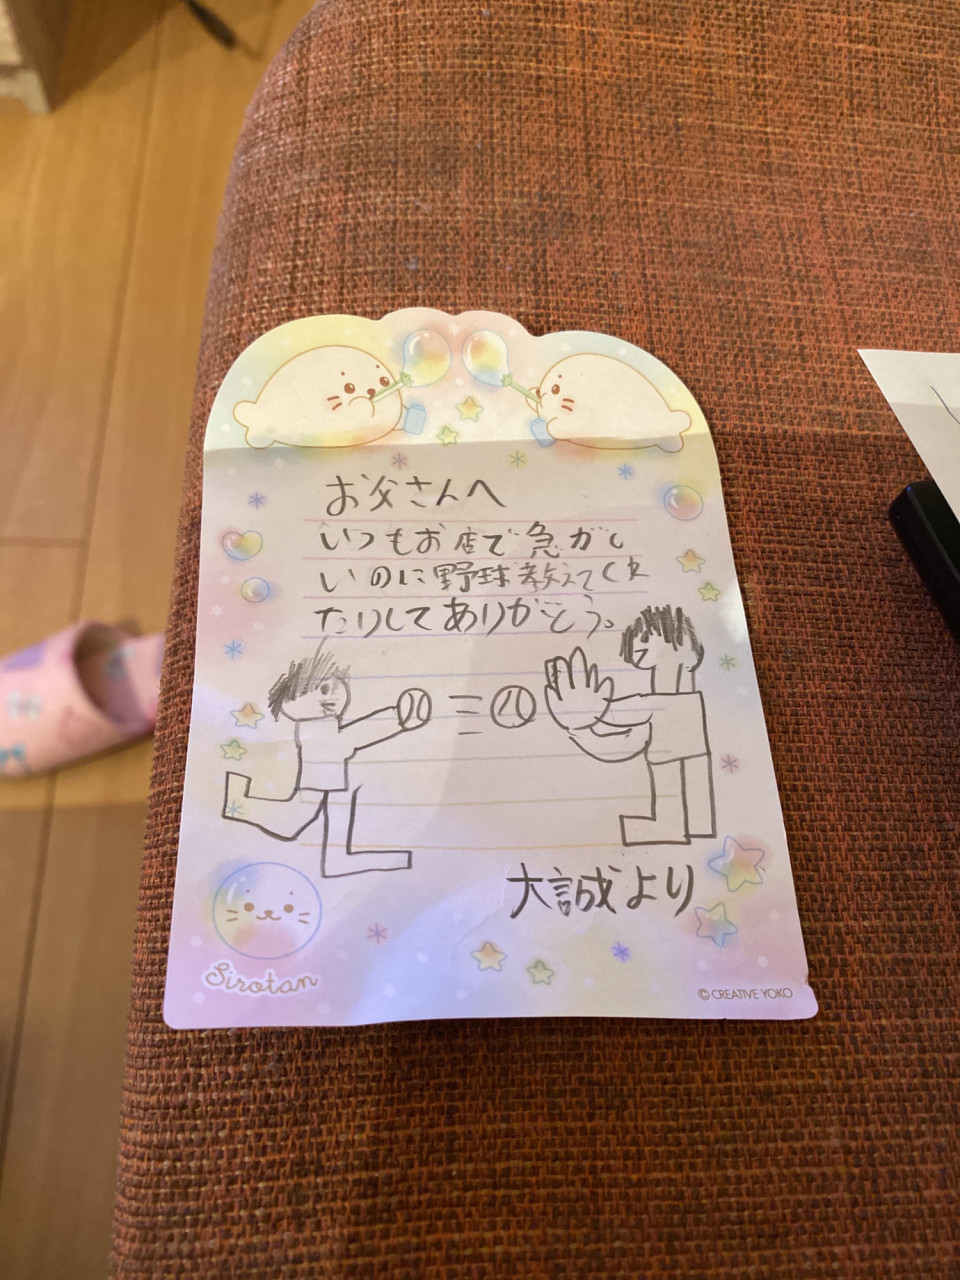 お父さんへ
いつもお店で急がし
いのに野球教えてくれ
たりしてありがとう。
大誠より
Sirotan
© CREATIVE YOKO